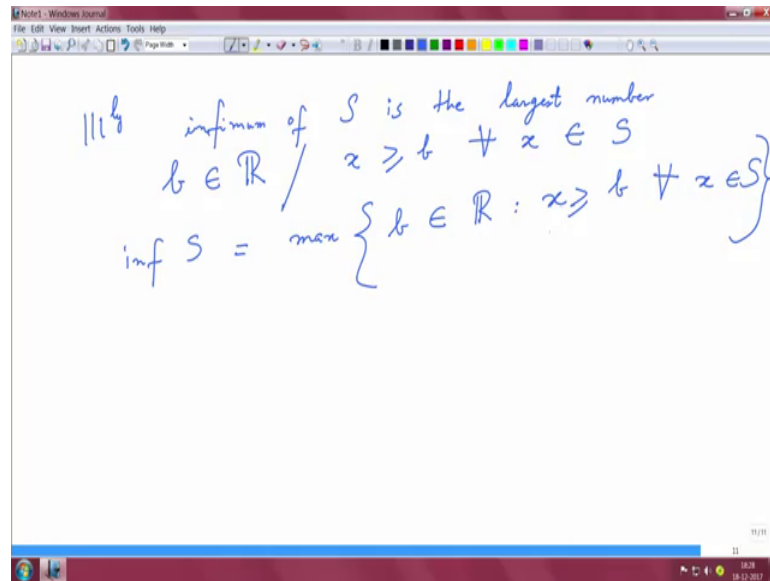 Note1 - Windows Journal
File Edit View Insert Actions Tools Help
Page Width
B I
|||ly infimum of S is the largest number
b ∈ ℝ / x ≥ b ∀ x ∈ S
inf S = max { b ∈ ℝ : x ≥ b ∀ x ∈ S }
11/11
11
18:28
18-12-2017